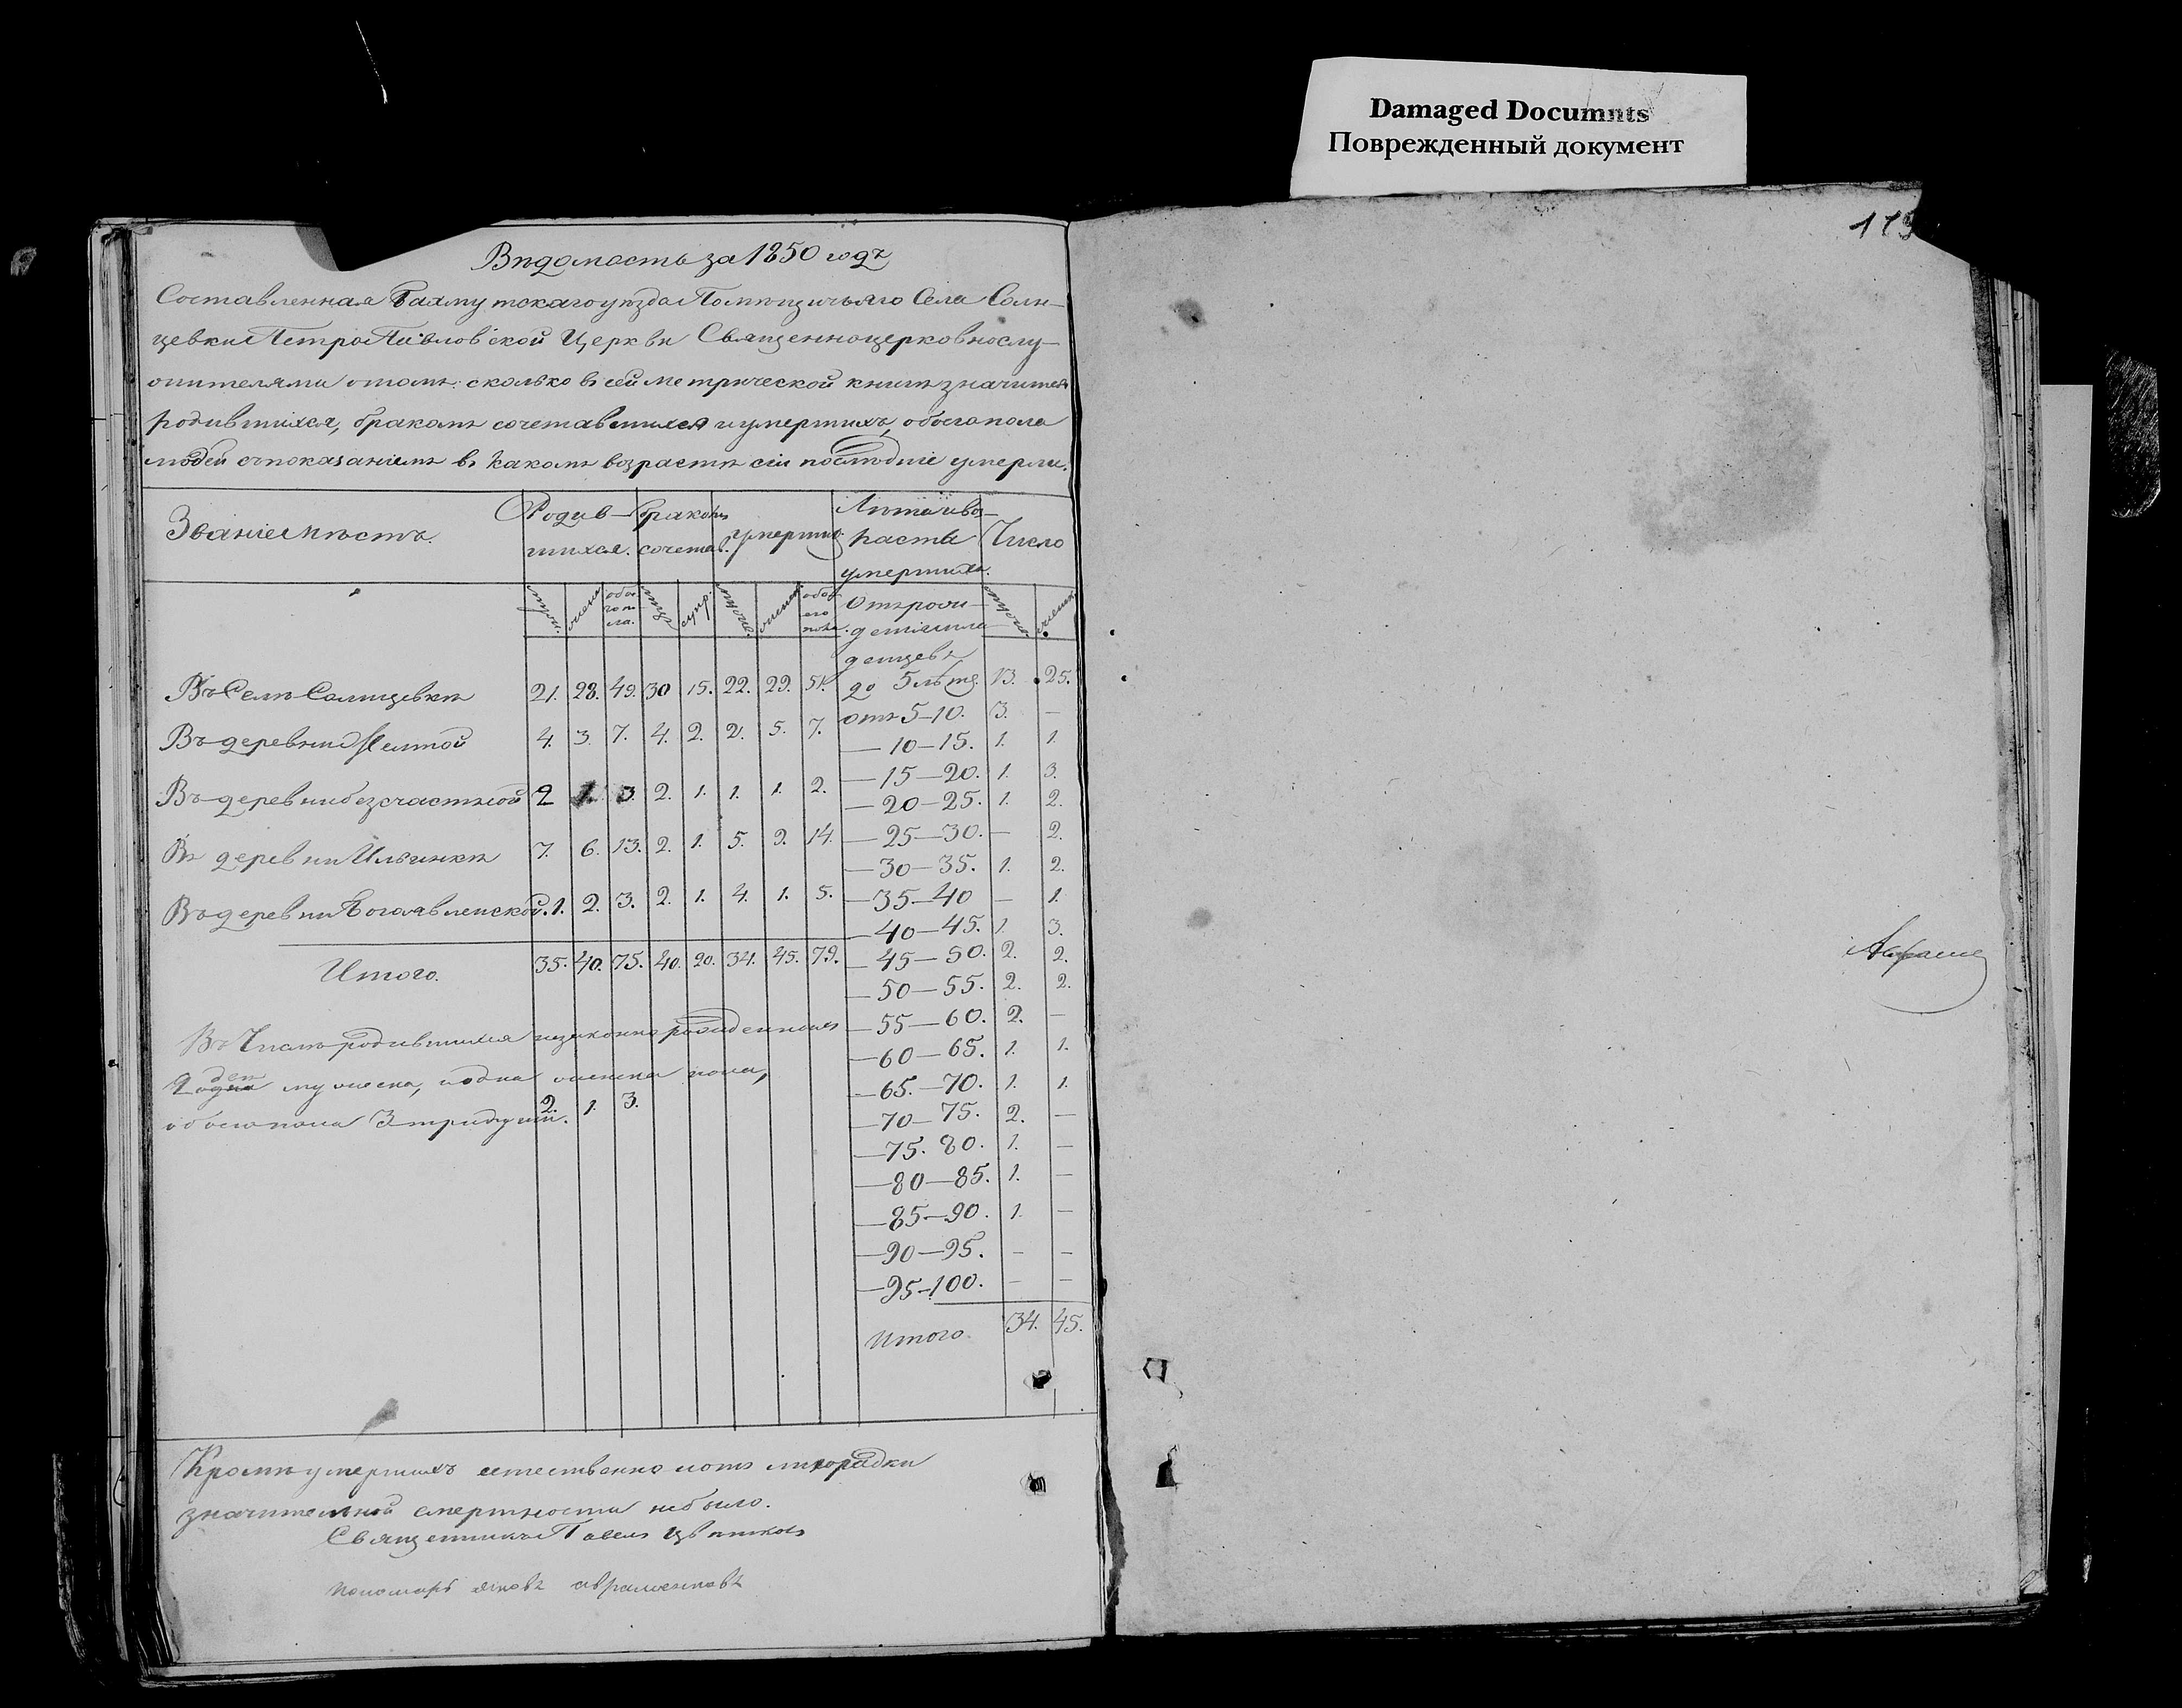 Damaged Documnts
Поврежденный документ
Вѣдомость за 1850 годъ
Составленная Бахмутскаго уѣзда Помѣщичьяго Села Солн-
цевки Петро Павловской Церкви Священноцерковнослу-
жителями о томъ: сколько въ сей метрической книгѣ значится
родившихся, бракомъ сочетавшихся и умершихъ, обоего пола
людей съ показаніемъ въ какомъ возрастѣ сіи послѣдніе умерли.
Званіе мѣстъ. Родив- бракомъ умершихъ Лѣта и воз-
шихся. сочетав. раста Число
умершихъ.
муж. женск обоего пола. муж. супр. мужеск. женск. обоего пола. Отъ рож- мужеск. женск.
денія мла-
денцевъ
Въ Селѣ Солнцевкѣ 21. 28. 49. 30 15. 22. 29. 51. до 5 лѣтъ. 13. 25.
отъ 5-10. 3. —
Въ деревни Желтой 4. 3. 7. 4. 2. 2. 5. 7. — 10-15. 1. 1.
— 15-20. 1. 3.
Въ деревни безсчастной 2 1. 3. 2. 1. 1. 1. 2. — 20-25. 1. 2.
Въ деревни Ильинкѣ 7. 6. 13. 2. 1. 5. 9. 14. — 25-30. — 2.
— 30-35. 1. 2.
Въ деревни Богоявленской. 1. 2. 3. 2. 1. 4. 1. 5. — 35-40 — 1.
— 40-45. 1. 3.
Итого. 35. 40. 75. 40. 20. 34. 45. 79. — 45-50. 2. 2.
— 50-55. 2. 2.
Въ Числѣ родившихся незаконнорожденныхъ — 55-60. 2. —
— 60-65. 1. 1.
2 мужеска, и одна женска пола, — 65.-70. 1. 1.
обоего пола 3 три души. 2. 1. 3. — 70-75. 2. —
— 75. 80. 1. —
— 80-85. 1. —
— 85-90. 1. —
— 90-95. — —
— 95-100. — —
Итого 34. 45.
Кромѣ умершихъ естественно и отъ лихорадки
значительной смертности небыло.
Священникъ Павелъ Цвѣтковъ
пономарь